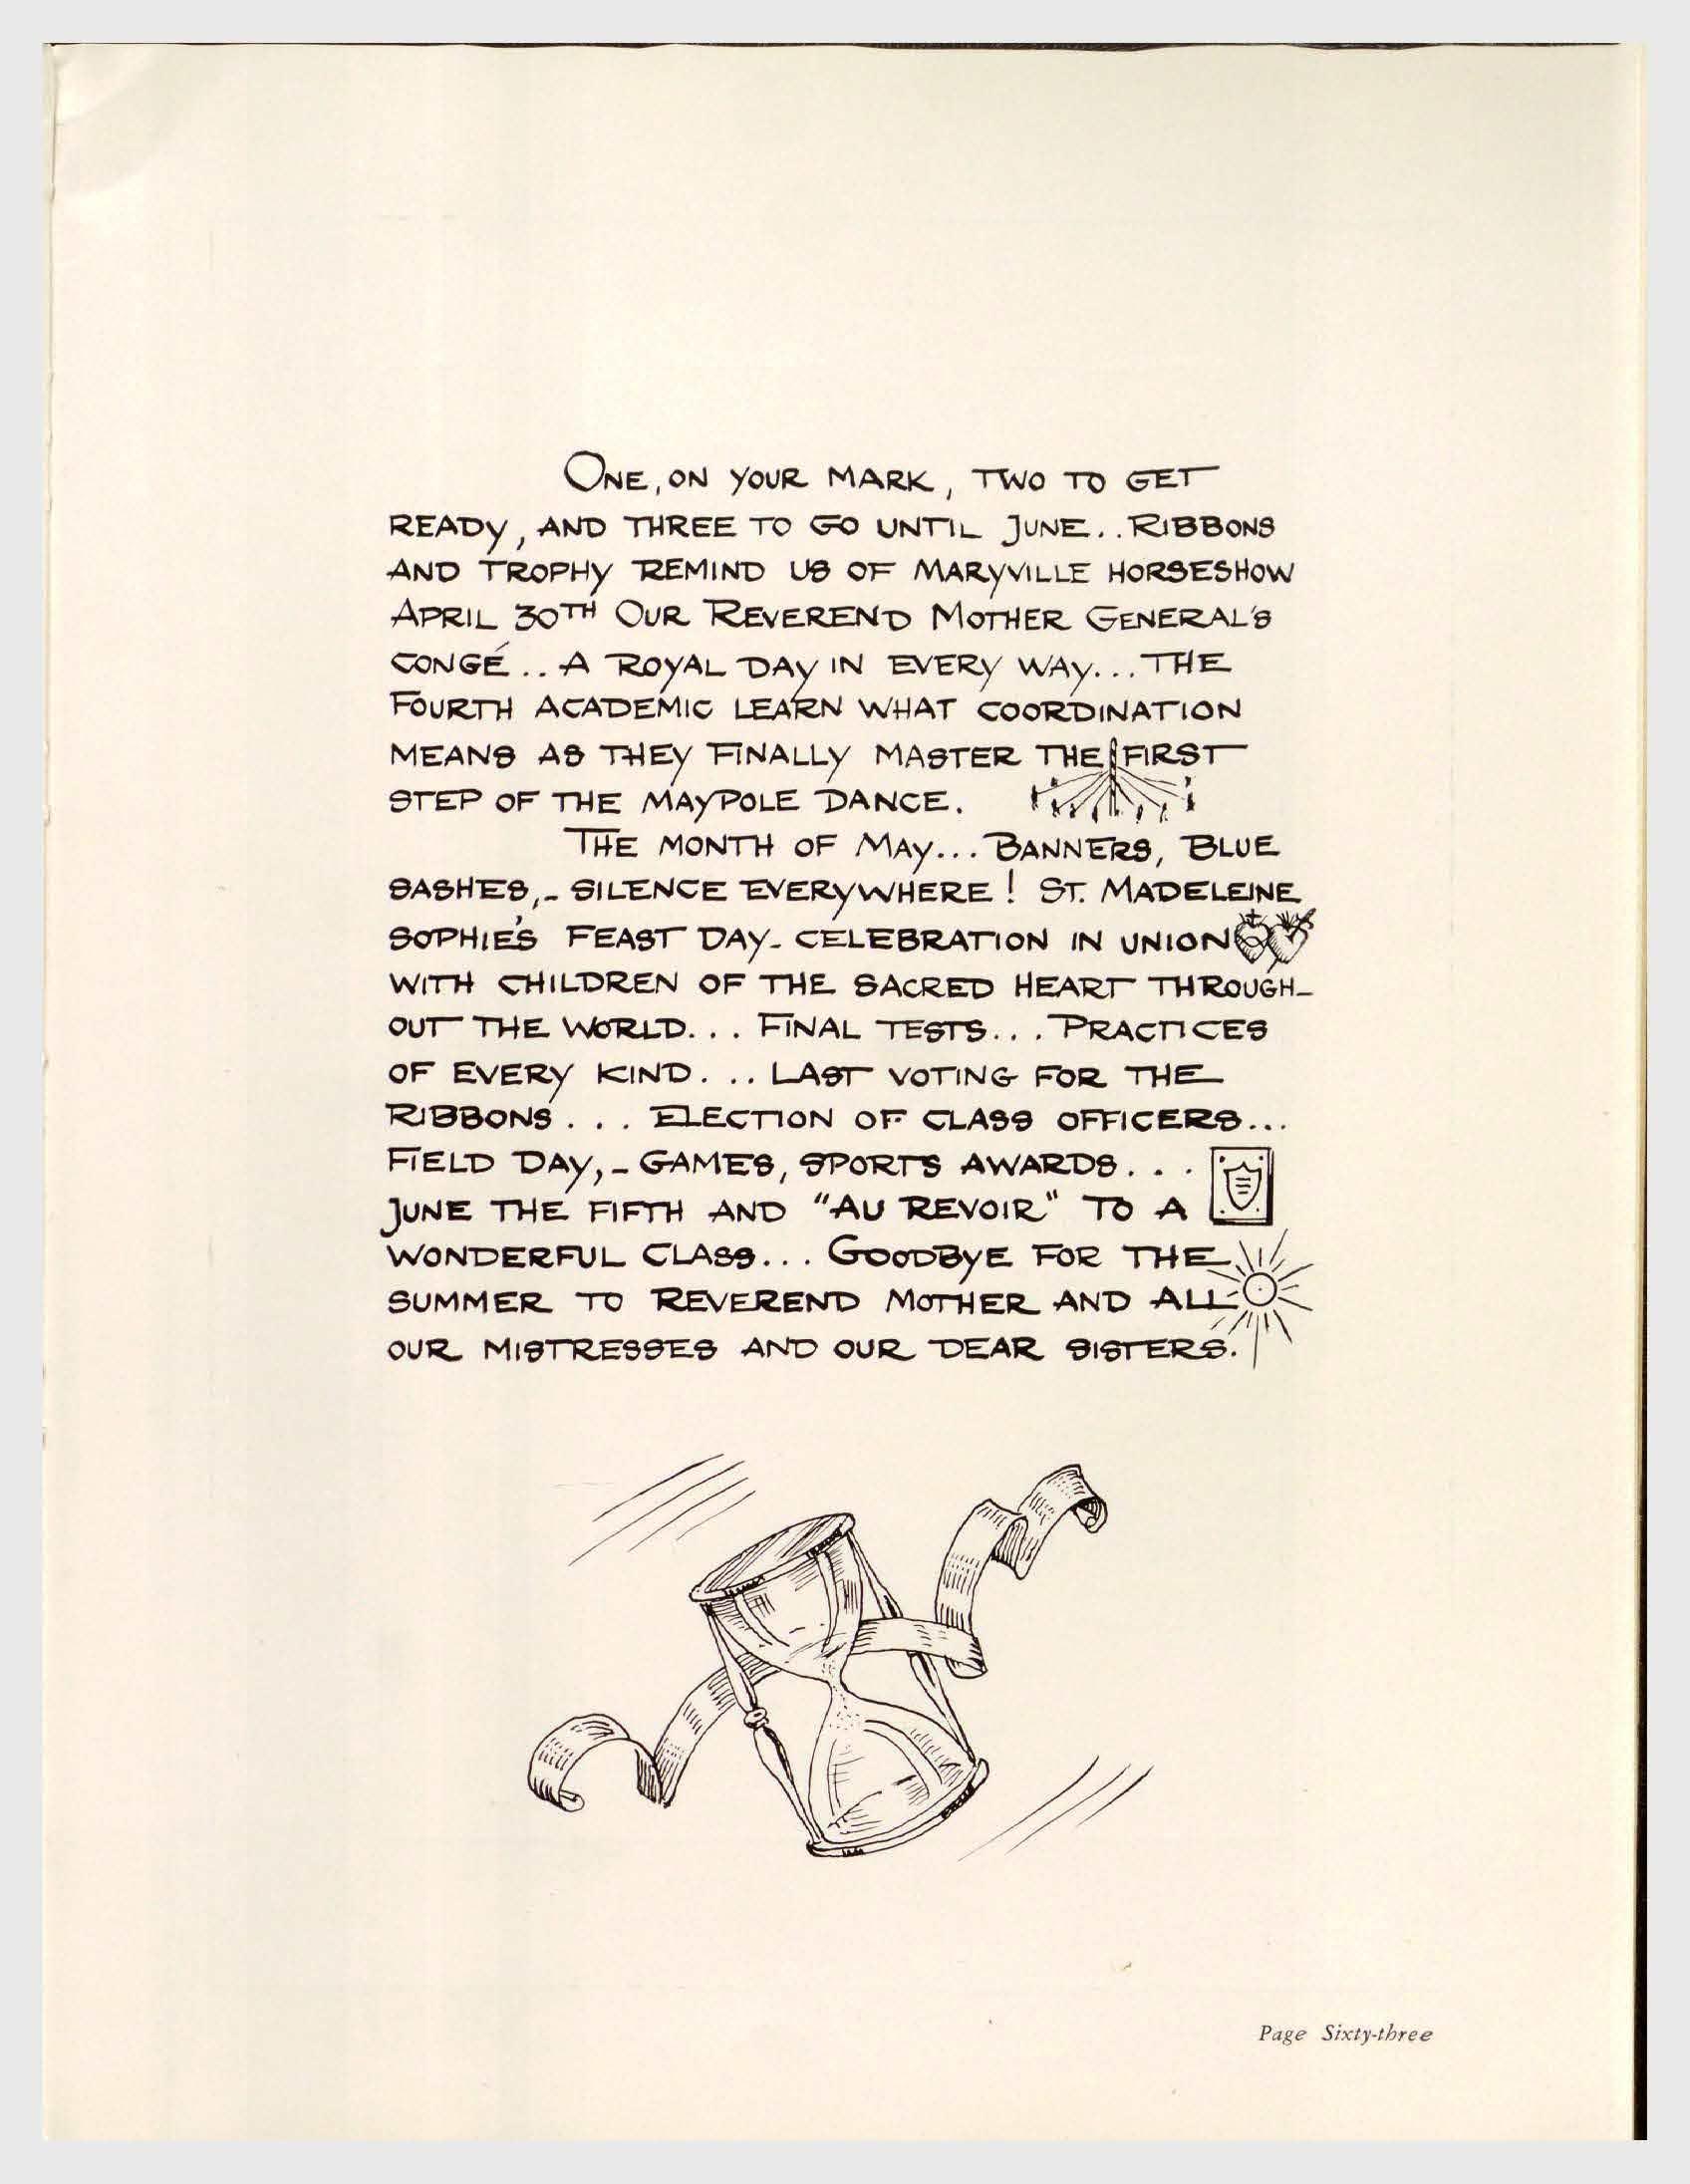 ONE, ON YOUR MARK, TWO TO GET
READY, AND THREE TO GO UNTIL JUNE.. RIBBONS
AND TROPHY REMIND US OF MARYVILLE HORSESHOW
APRIL 30TH OUR REVEREND MOTHER GENERAL'S
CONGÉ.. A ROYAL DAY IN EVERY WAY... THE
FOURTH ACADEMIC LEARN WHAT COORDINATION
MEANS AS THEY FINALLY MASTER THE FIRST
STEP OF THE MAYPOLE DANCE.
THE MONTH OF MAY... BANNERS, BLUE
SASHES,- SILENCE EVERYWHERE! ST. MADELEINE
SOPHIE'S FEAST DAY- CELEBRATION IN UNION
WITH CHILDREN OF THE SACRED HEART THROUGH-
OUT THE WORLD... FINAL TESTS... PRACTICES
OF EVERY KIND... LAST VOTING FOR THE
RIBBONS... ELECTION OF CLASS OFFICERS...
FIELD DAY,- GAMES, SPORTS AWARDS...
JUNE THE FIFTH AND "AU REVOIR" TO A
WONDERFUL CLASS... GOODBYE FOR THE
SUMMER TO REVEREND MOTHER AND ALL
OUR MISTRESSES AND OUR DEAR SISTERS.
Page Sixty-three